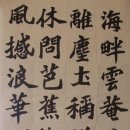 海畔雲菴
離塵土稱
休問芭蕉
風撼浪華